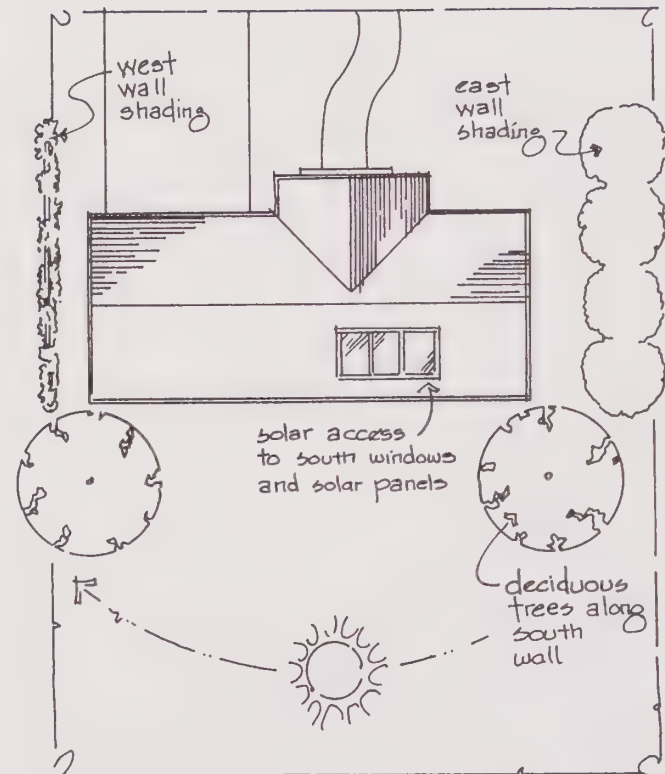 west
wall
shading
east
wall
shading
solar access
to south windows
and solar panels
deciduous
trees along
south
wall